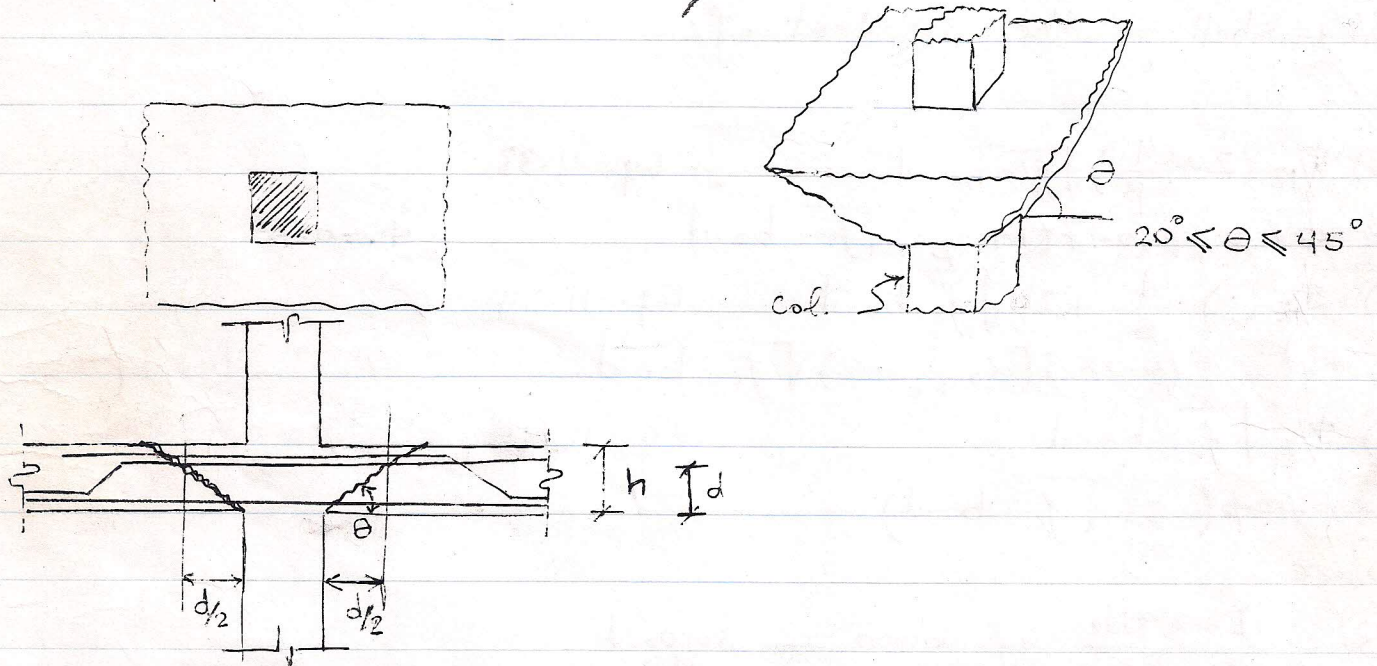 θ
20° ≤ θ ≤ 45°
col.
h
d
θ
d/2
d/2